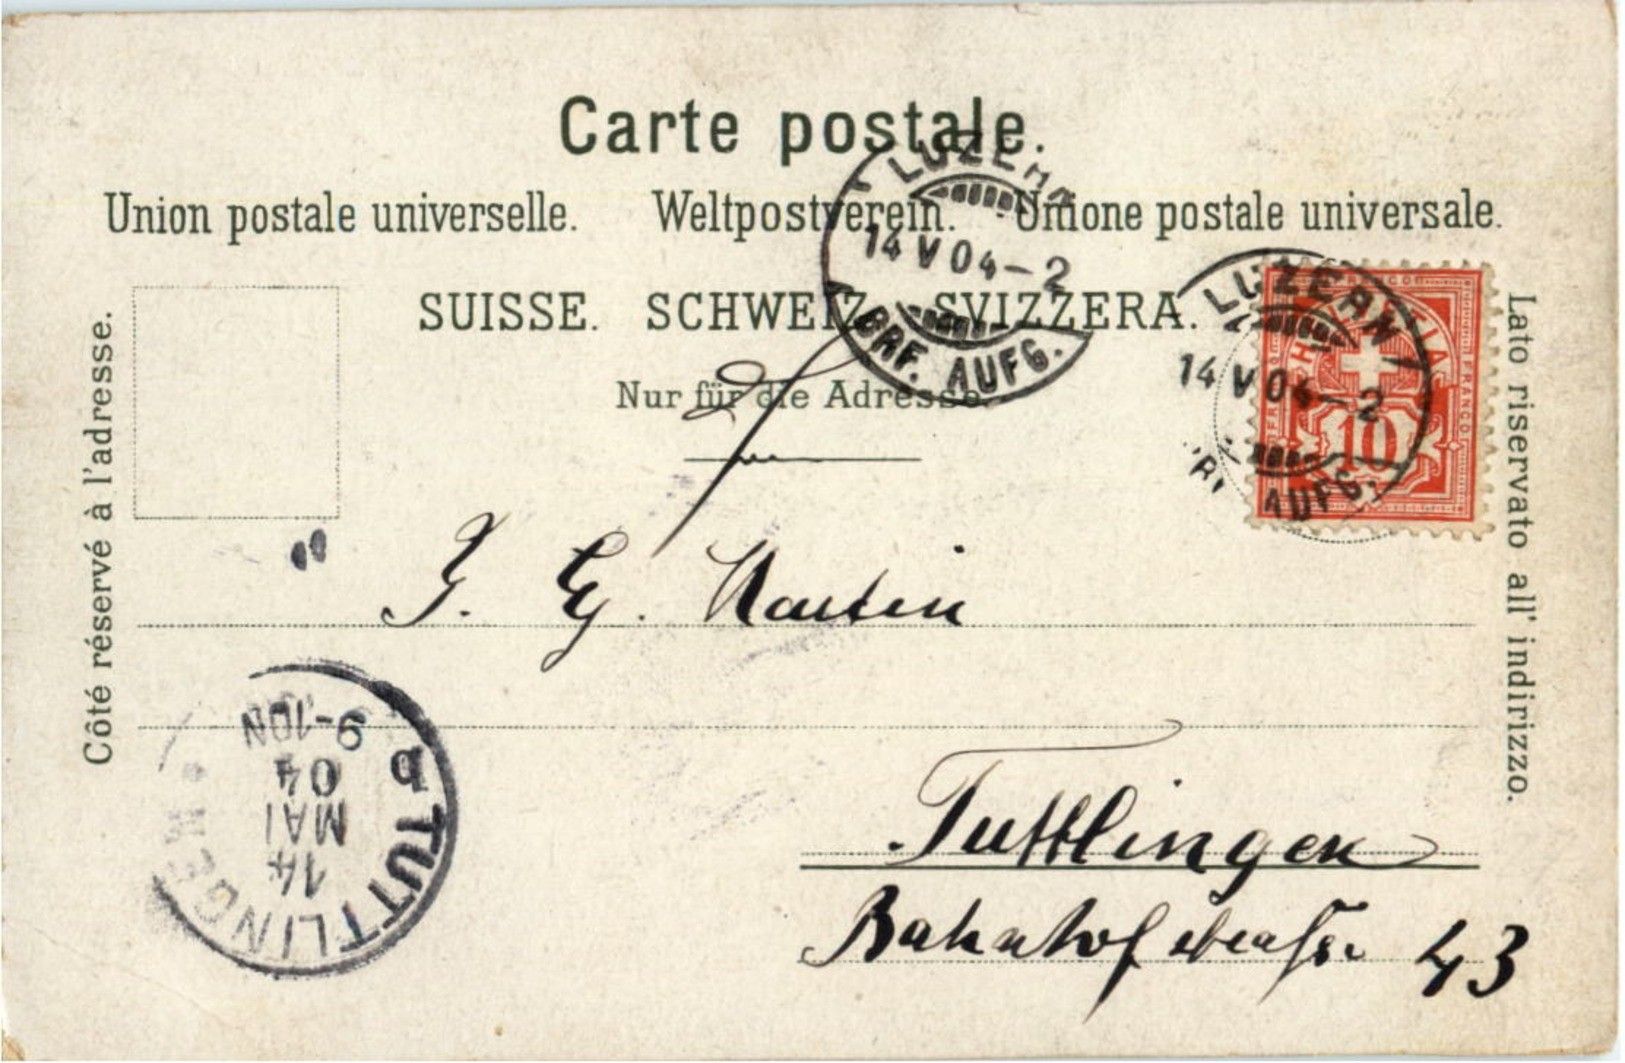 Carte postale.
Union postale universelle. Weltpostverein. Unione postale universale.
SUISSE. SCHWEIZ. SVIZZERA.
Nur für die Adresse.
Côté réservé à l'adresse.
Lato riservato all' indirizzo.
LUZERN
14 V 04 - 2
BRF. AUFG.
LUZERN
14 V 04 - 2
BRF. AUFG.
FRANCO
10
J. G. Martin
Tuttlingen
Bahnhofstrasse 43
TUTTLINGEN
14
MAI
04
9-10N